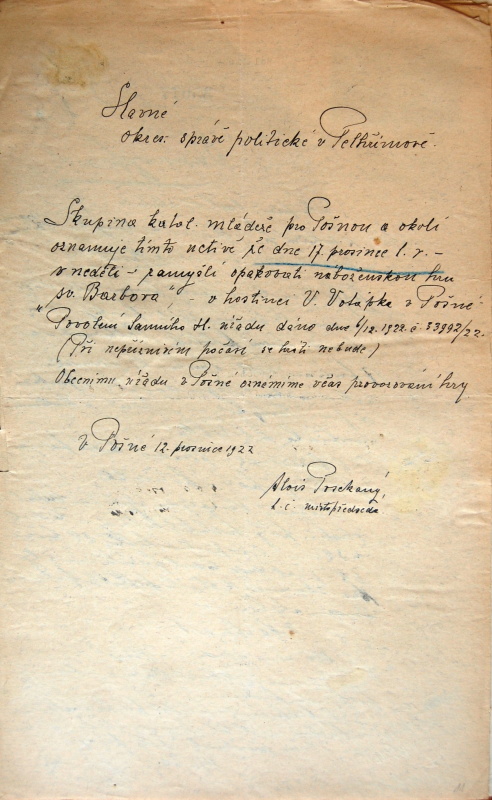 Slavné
okres. správě politické v Pelhřimově.
Skupina katol. mládeže pro Pošnou a okolí
oznamuje tímto uctivě že dne 17. prosince t. r. -
v neděli - zamýšlí opakovati náboženskou hru
„sv. Barbora" - v hostinci V. Votápka v Pošné
Povolení slavného sl. úřadu dáno dne 6/12. 1922. č. 33992/22.
(Při nepříznivém počasí se hráti nebude)
Obecnímu úřadu v Pošné oznámíme včas provozování hry
v Pošné 12. prosince 1922
Alois Posekaný,
t. č. místopředseda